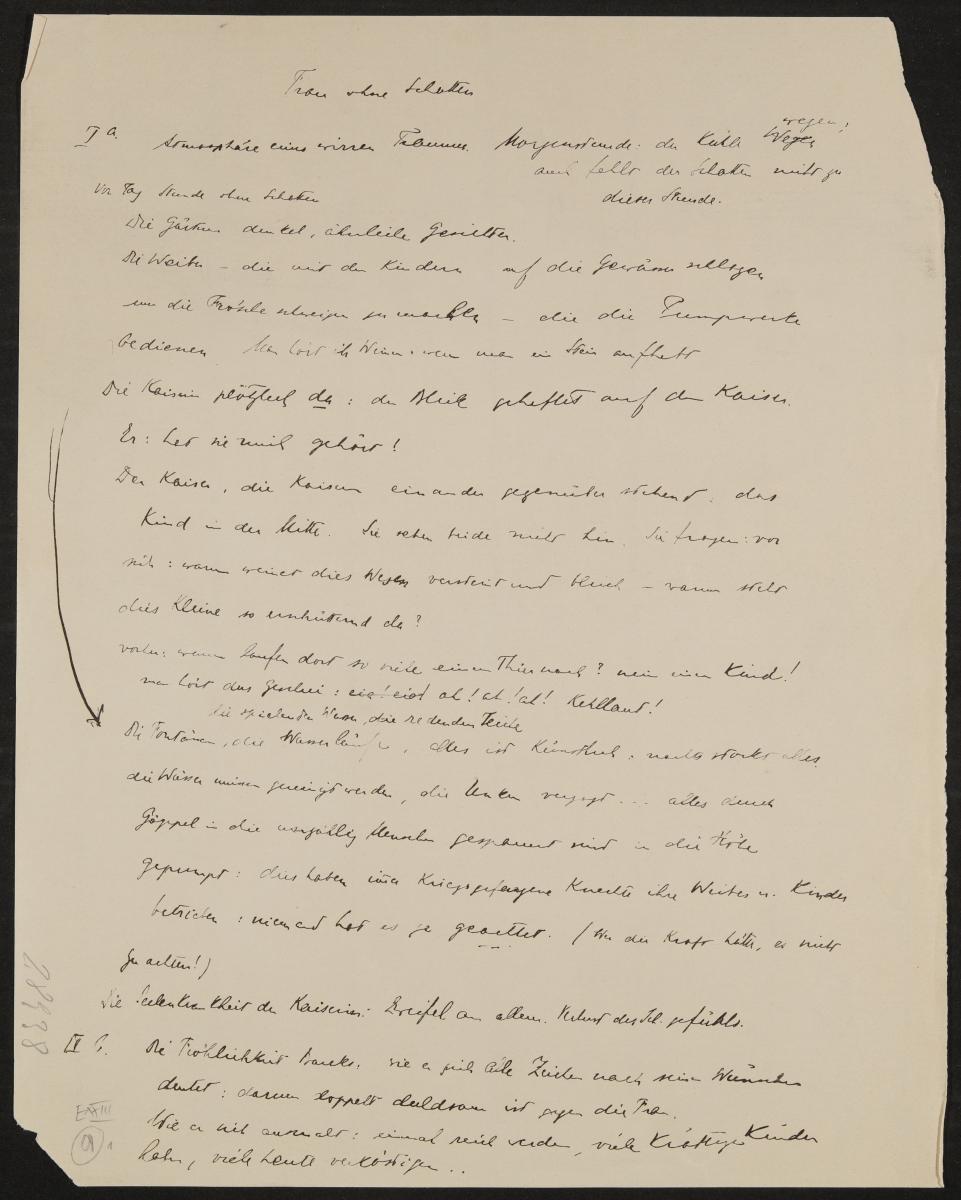 Frau ohne Schatten
I a. Atmosphäre eines wirren Traumes. Morgenstunde: der Kühle wegen;
auch fehlt der Schatten nicht zu
dieser Stunde.
vor Tag Stunde ohne Schatten
Die Gärtner dunkel, ähnliche Gestalten.
Die Weiber – die mit den Kindern auf die Gewässer schlagen
um die Frösche schweigen zu machen – die die Pumpwerke
bedienen Man hört ihr Weinen wenn man ein Stein aufhebt
Die Kaiserin plötzlich da: den Blick geheftet auf den Kaiser.
Er: hat sie mich gehört!
Der Kaiser, die Kaiserin einander gegenüber stehend, das
Kind in der Mitte. Sie sehen beide nicht hin. Sie fragen: vor
sich: warum weinet dies Wesen versteint und bleich – warum steht
dies Kleine so erschütternd da?
vorher: warum laufen dort so viele einem Thier nach? nein einem Kind!
man hört das Geschrei: ah! ah! ah! Kehllaut!
die spielenden Wasser, die redenden Teiche
Die Fontänen, die Wasserläufe, alles ist künstlich: nachts stockt alles.
die Wässer müssen gereinigt werden, die Unken verjagt ... alles durch
Göppel in die unzählig Menschen gespannt sind in die Höhe
gepumpt: dies haben immer Kriegsgefangene Knechte ihre Weiber u. Kinder
betrieben: niemand hat es je geachtet. (Wer die Kraft hätte, es nicht
zu achten!)
Die Seelenkrankheit der Kaiserin: Zweifel an allem. Verlust des Selbstgefühls.
II b. Die Fröhlichkeit Baraks, wie er sich alle Zeichen nach seinen Wünschen
deutet: darum doppelt duldsam ist gegen die Frau.
Wie er sich ausmalt: einmal reich werden, viele kräftige Kinder
haben, viele Leute verköstigen..
28338
E XIII
9 1